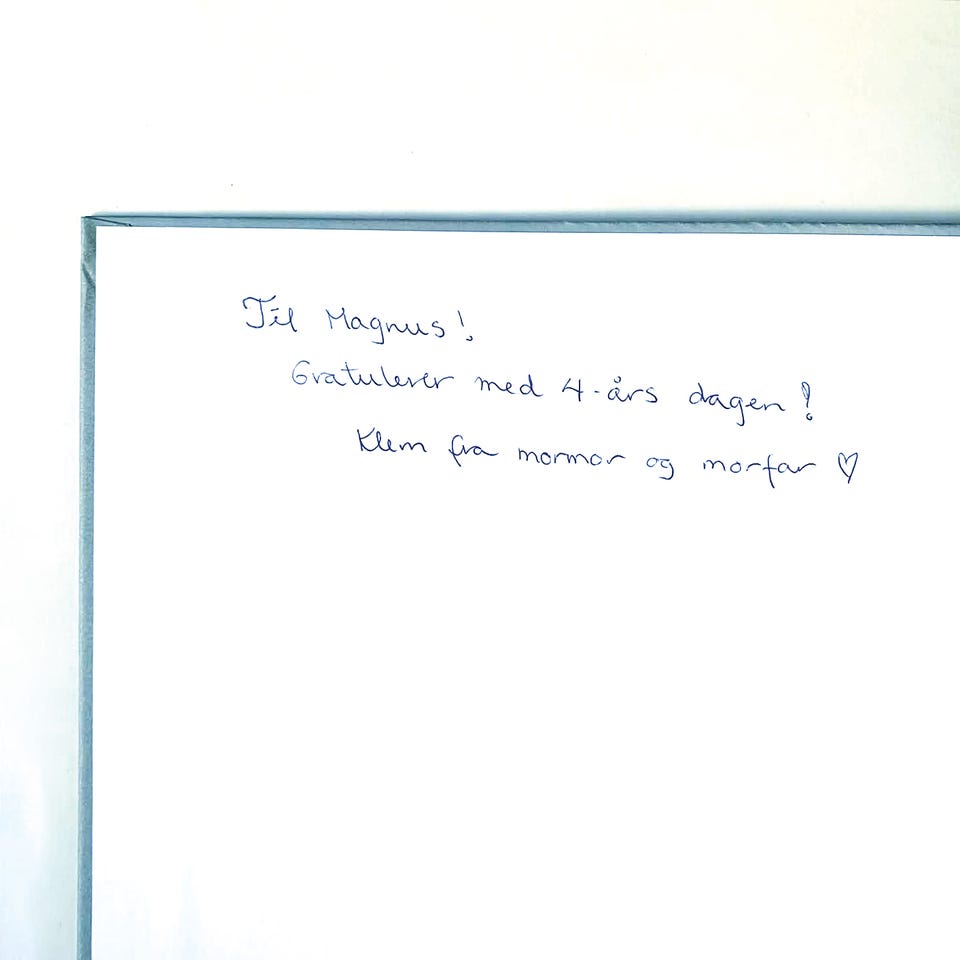 Til Magnus!
Gratulerer med 4-års dagen!
Klem fra mormor og morfar ♡